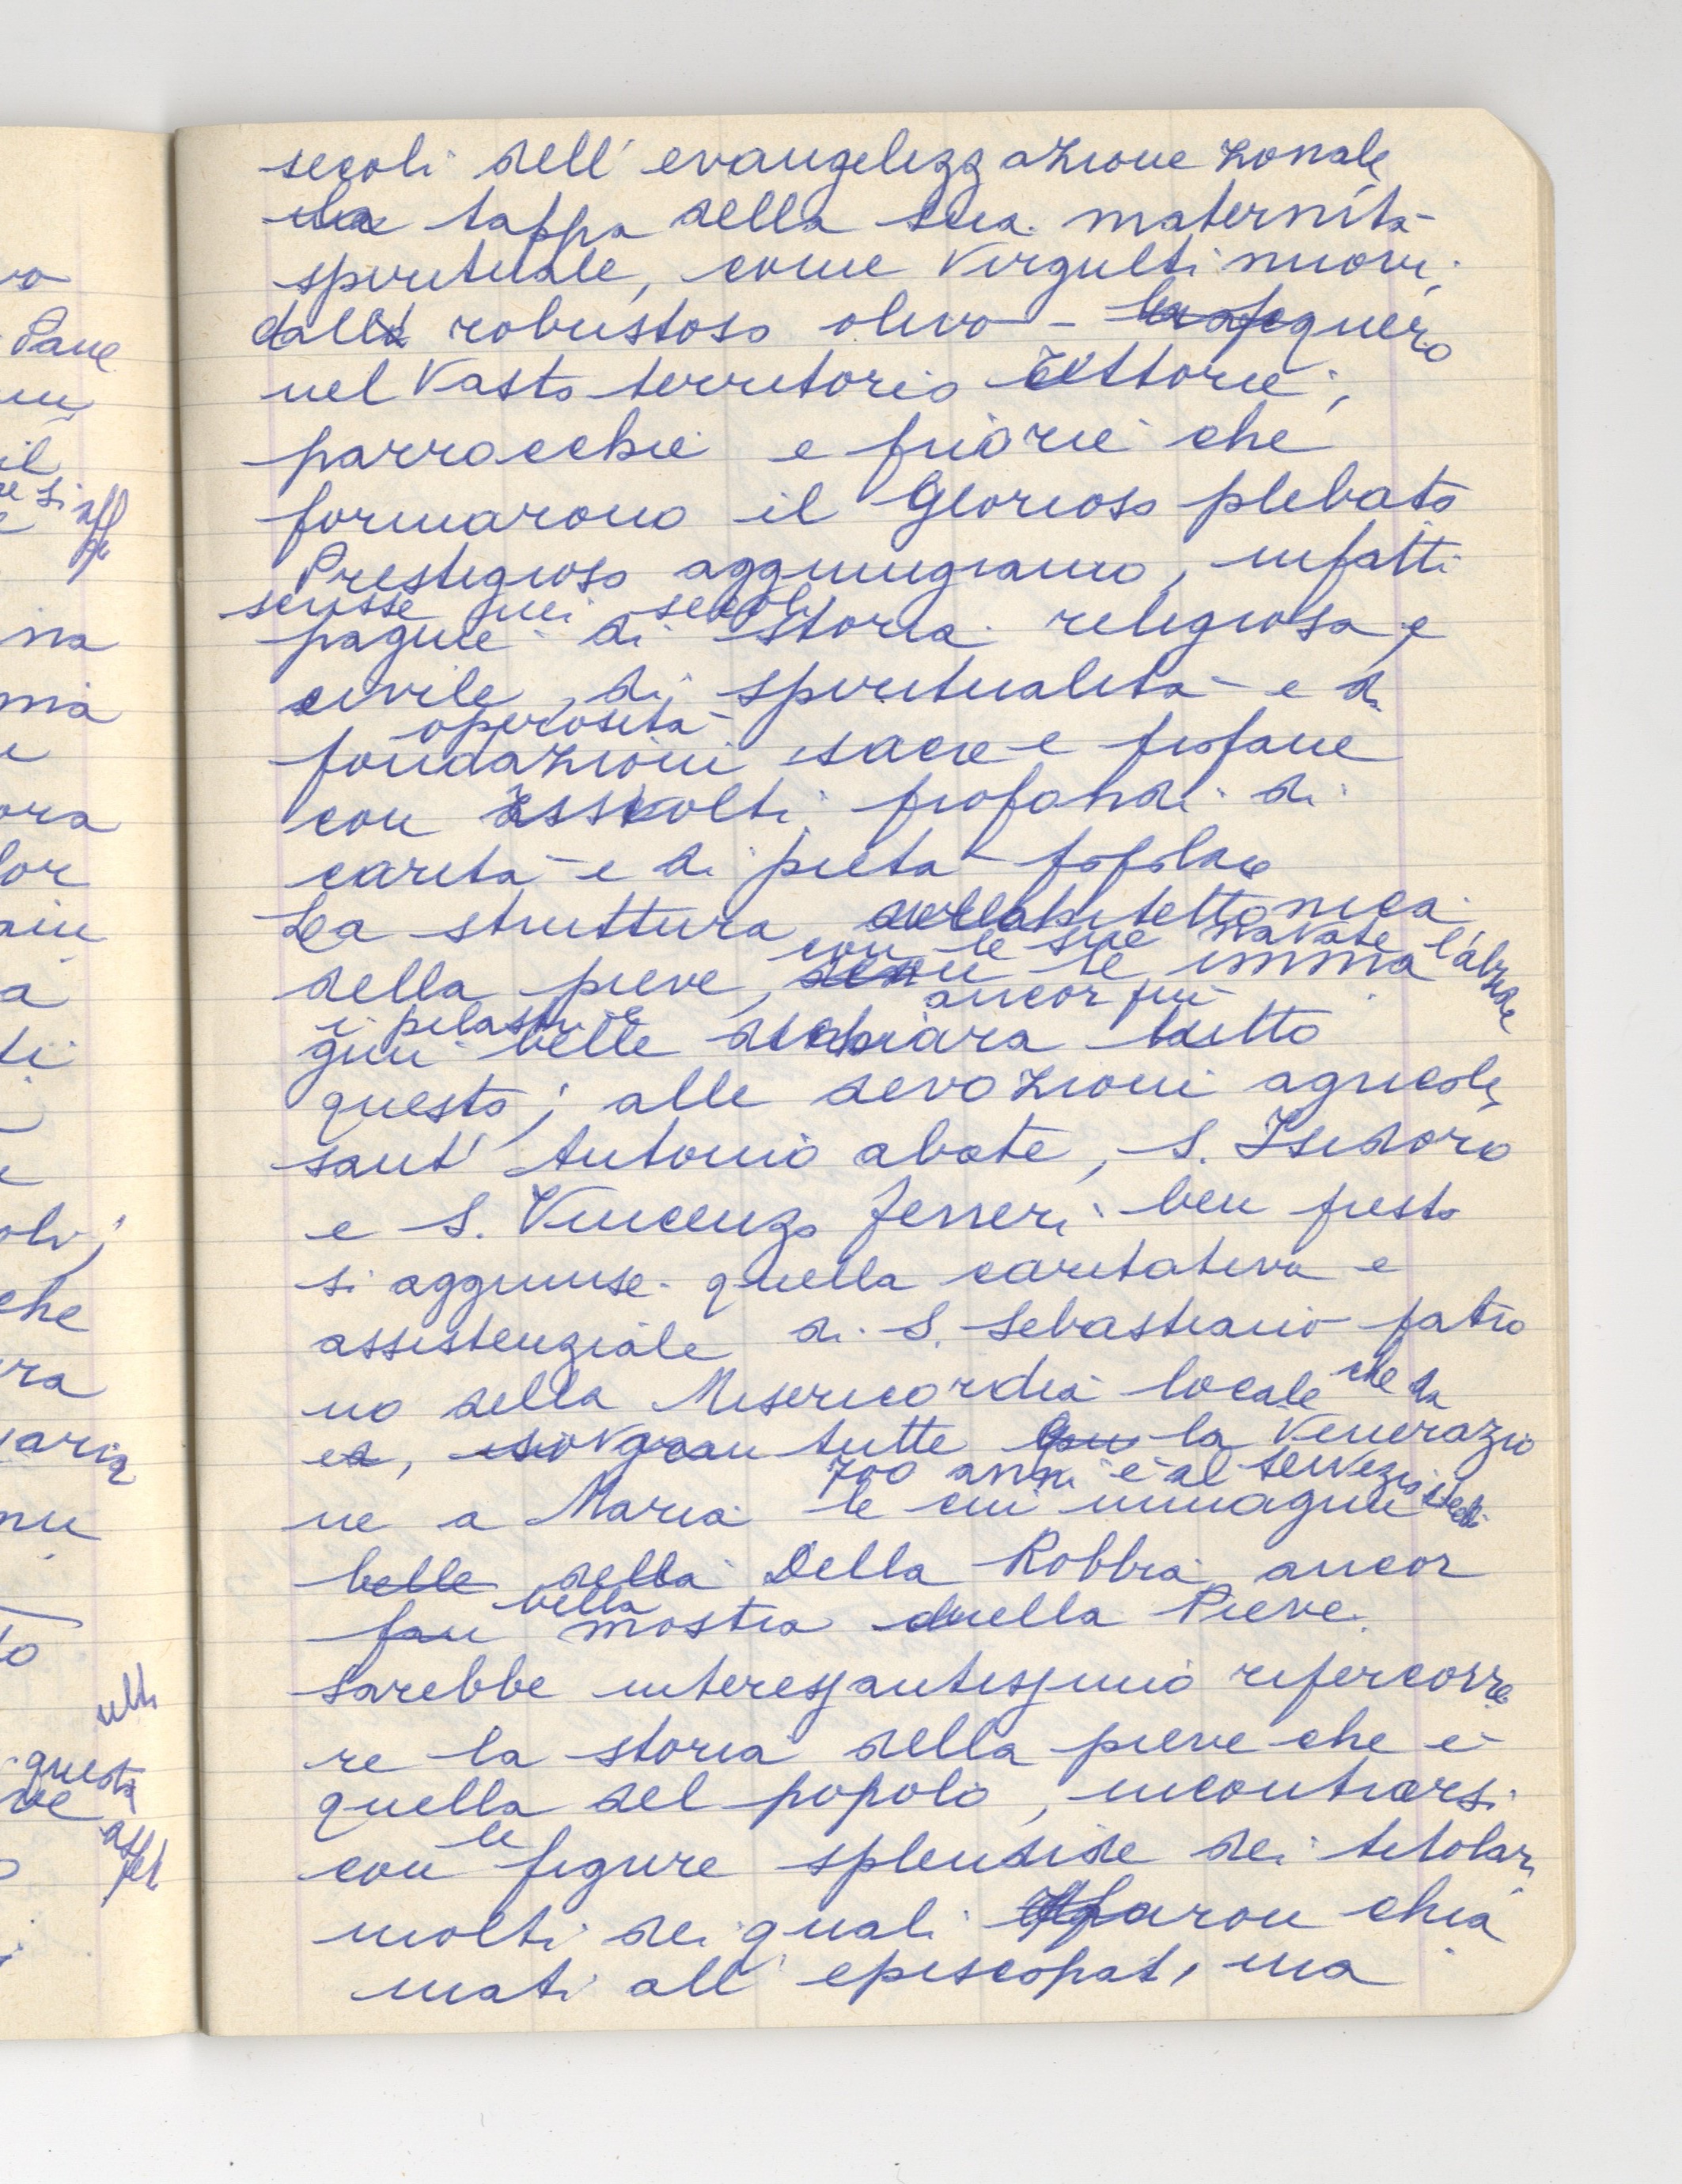 secoli dell'evangelizzazione zonale
tappa della sua maternità
spirituale, come virgulti nuovi,
dall robustoso olivo - nacquero
nel vasto territorio rettorie,
parrocchie e priorie che
formarono il Glorioso plebato
Prestigioso aggiungiamo, infatti
scrisse nei secoli
pagine di storia religiosa e
civile, di spiritualità e di
operosità
fondazioni sacre e profane
con risvolti profondi di
carità e di pietà popolare
La struttura architettonica
con le sue navate l'abside
della pieve, le imma
i pilastri e ancor più
gini belle dichiara tutto
questo; alle devozioni agricole,
sant'Antonio abate, S. Isidoro
e S. Vincenzo Ferreri ben presto
si aggiunse quella caritativa e
assistenziale di S. Sebastiano patro
no della Misericordia locale che da
ed, tutte la venerazio
700 anni è al servizio
ne a Maria le cui immagini
belle della Della Robbia ancor
bella
fan mostra nella Pieve.
Sarebbe interessantissimo ripercorre
re la storia della pieve che è
quella del popolo, incontrarsi
le
con figure splendide dei titolari
molti dei quali furon chia
mati all'episcopat, ma
Pane
il
si
na
ma
ora
lor
a
che
ra
nu
to
questa